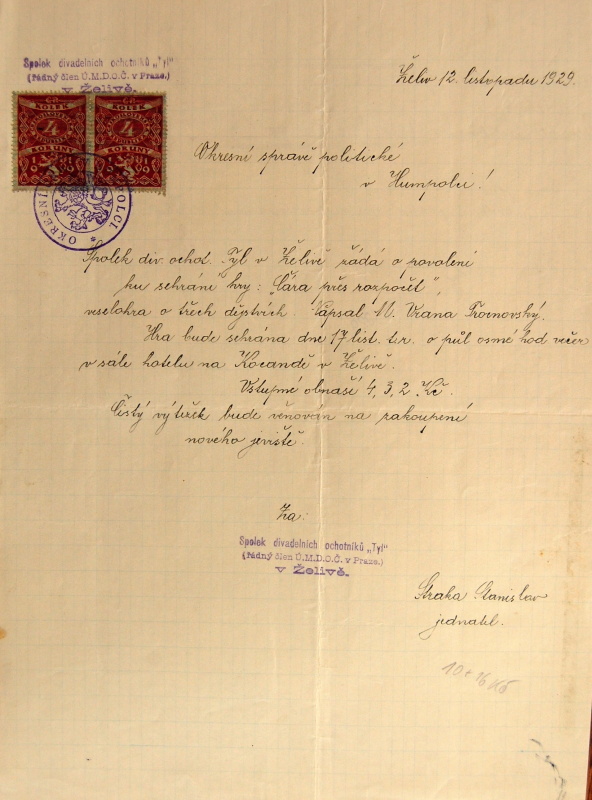 Spolek divadelních ochotníků „Tyl"
(řádný člen Ú.M.D.O.Č. v Praze.)
v Želivě.
Želiv 12. listopadu 1929.
KOLEK KOLEK
4 4
KORUNY KORUNY
OKRESNÍ
Okresní správě politické
v Humpolci!
Spolek div. ochot. Tyl v Želivě žádá o povolení
ku sehrání hry: „Čára přes rozpočet",
veselohra o třech dějstvích. Napsal M. Vrana Troinovský.
Hra bude sehrána dne 17 list. t.r. o půl osmé hod večer
v sále hotelu na Kocandě v Želivě.
Vstupné obnaší 4, 3, 2 Kč.
Čistý výtěžek bude věnován na zakoupení
nového jeviště.
Za:
Spolek divadelních ochotníků „Tyl"
(řádný člen Ú.M.D.O.Č. v Praze.)
v Želivě.
Straka Stanislav
jednatel.
10 + 16 Kč